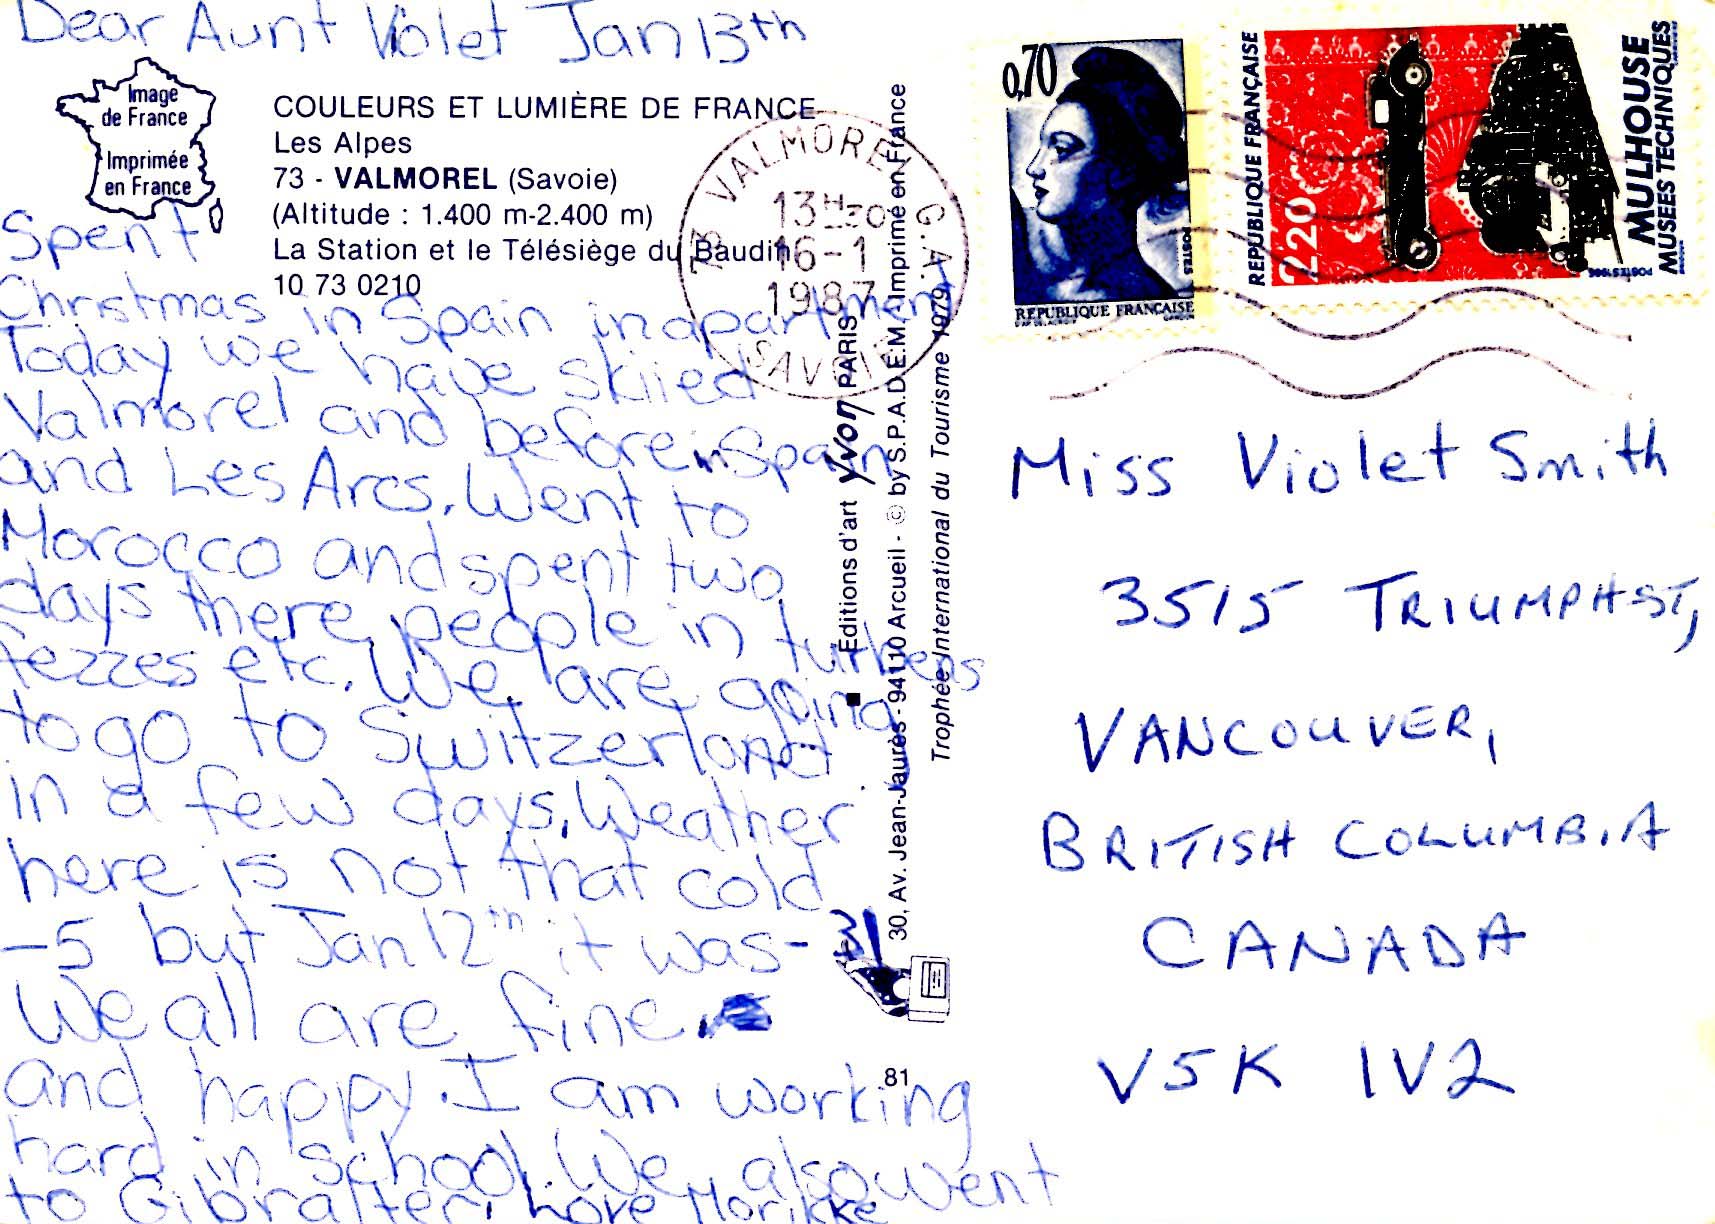 Dear Aunt Violet Jan 13th
Image
de France
Imprimée
en France
COULEURS ET LUMIÈRE DE FRANCE
Les Alpes
73 - VALMOREL (Savoie)
(Altitude : 1.400 m-2.400 m)
La Station et le Télésiège du Baudin
10 73 0210
Spent
Christmas in Spain in apartment
Today we have skiied
Valmorel and before in Spain
and Les Arcs. Went to
Morocco and spent two
days there, people in turbens
fezzes etc. We are going
to go to Switzerland
in a few days. Weather
here is not that cold
-5 but Jan 12th it was -31
We all are fine.
and happy. I am working
hard in school. We also went
to Gibralter. Love Morikke
73 VALMOREL G.A.
13H30
16-1
1987
SAVOIE
Editions d'art Yvon PARIS
30, Av. Jean-Jaurès - 94110 Arcueil - © by S.P.A.D.E.M. Imprimé en France
Trophée International du Tourisme 1979
81
0,70
POSTES
REPUBLIQUE FRANÇAISE
REPUBLIQUE FRANÇAISE
2,20
MULHOUSE
MUSEES TECHNIQUES
POSTES 1986
Miss Violet Smith
3515 TRIUMPH ST,
VANCOUVER,
BRITISH COLUMBIA
CANADA
V5K 1V2